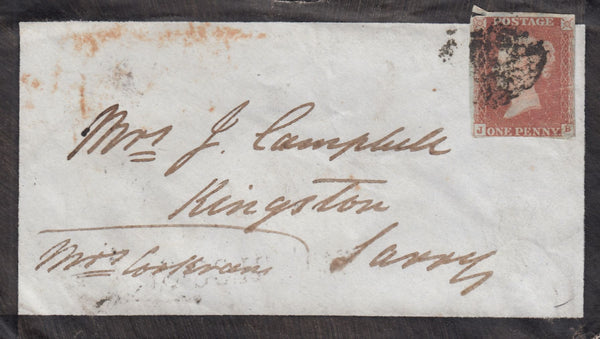 POSTAGE
J ONE PENNY
Mrs J. Campbell
Kingston
Surry
Mrs